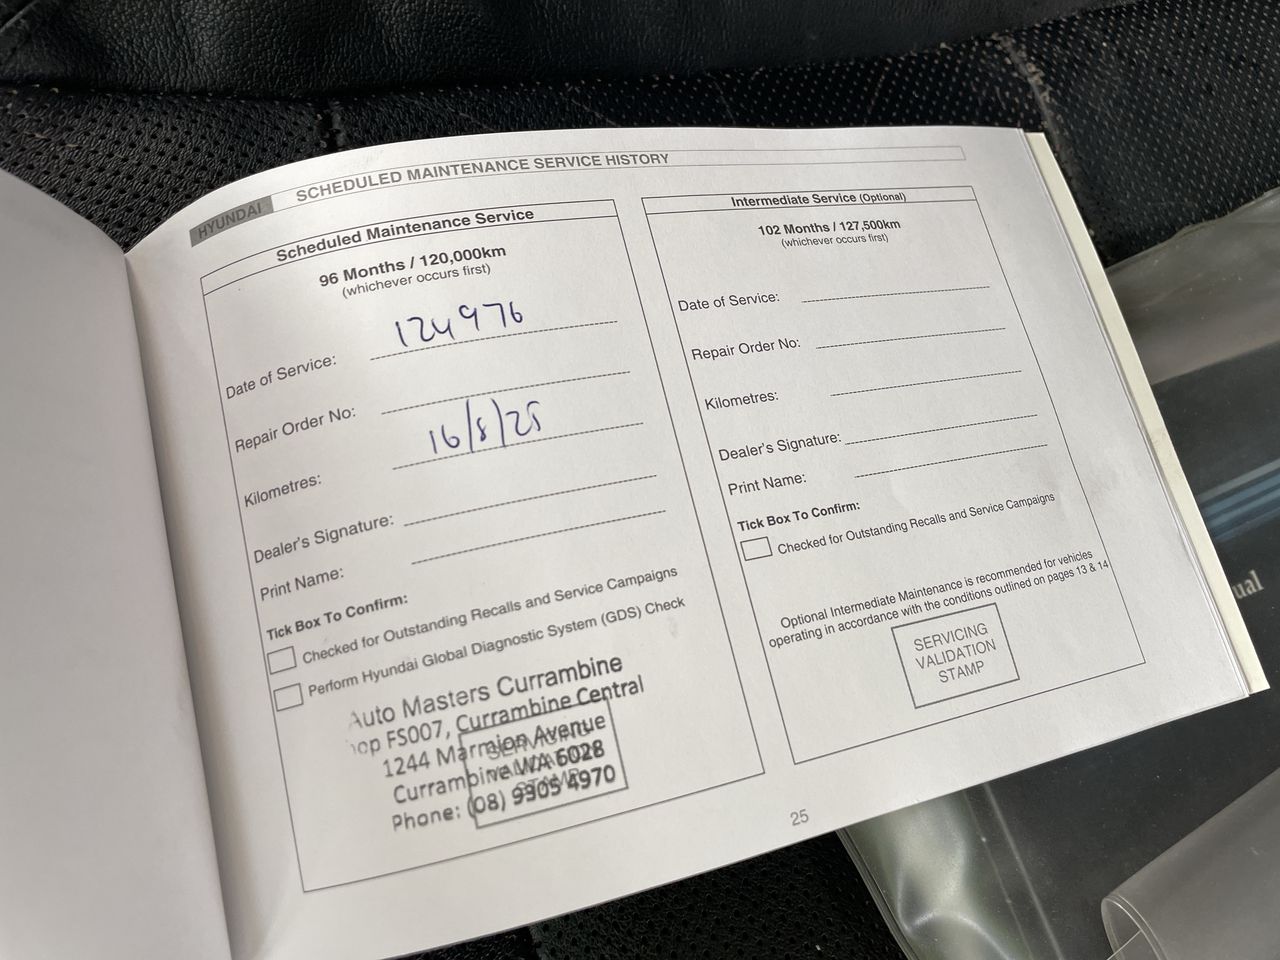 HYUNDAI SCHEDULED MAINTENANCE SERVICE HISTORY
Scheduled Maintenance Service
96 Months / 120,000km
(whichever occurs first)
Date of Service: 124976
Repair Order No:
Kilometres: 16/8/25
Dealer's Signature:
Print Name:
Tick Box To Confirm:
Checked for Outstanding Recalls and Service Campaigns
Perform Hyundai Global Diagnostic System (GDS) Check
Auto Masters Currambine
FS007, Currambine Central
1244 Marmion Avenue
Currambine WA 6028
Phone: (08) 9305 4970
SERVICING
VALIDATION
STAMP
Intermediate Service (Optional)
102 Months / 127,500km
(whichever occurs first)
Date of Service:
Repair Order No:
Kilometres:
Dealer's Signature:
Print Name:
Tick Box To Confirm:
Checked for Outstanding Recalls and Service Campaigns
Optional Intermediate Maintenance is recommended for vehicles
operating in accordance with the conditions outlined on pages 13 & 14
SERVICING
VALIDATION
STAMP
25